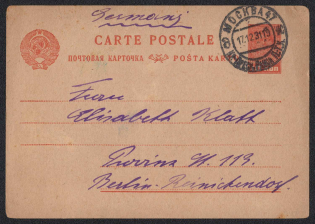 Germany
CARTE POSTALE
ПОЧТОВАЯ КАРТОЧКА POŠTA KAR
МОСКВА
Frau
Elisabeth Klatt
Provinz St. 113.
Berlin-Reinickendorf.